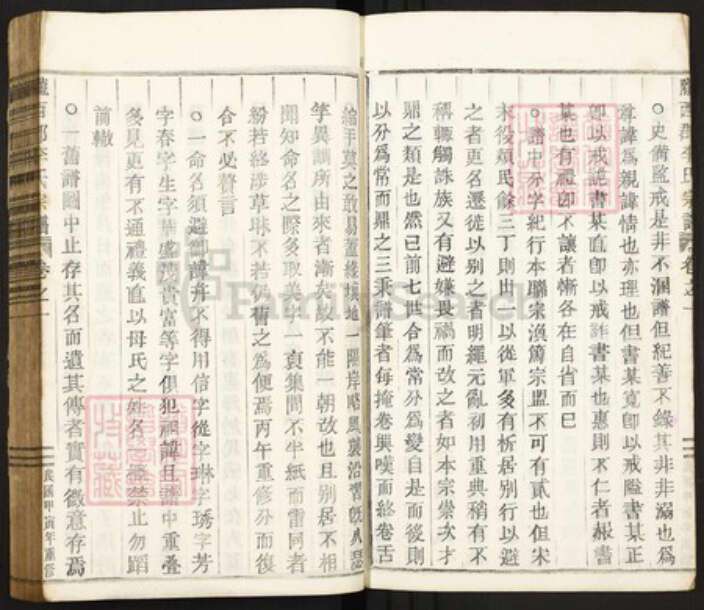 ○史備監戒是非不溷譜但紀善不錄其非非溺也爲
尊諱爲親諱情也亦理也但書某寬卽以戒隘書其正
卽以戒詭書某直卽以戒詐書某也惠則不仁者赧書
某也有禮卽不讓者慚各在自省而已
○譜中分字紀行本聯宗渙篤宗盟不可有貳也但宋
末役煩民餘三丁則出一以從軍多有析居別行以避
之者更名遷徙以别之者明繩元亂初用重典稍有不
稱輒觸誅族又有避嫌畏禍而改之者如本宗崇次才
鼎之類是也然已前七世合爲常分爲變自是而後則
以分爲常而鼎之三秉譜筆者每掩卷興嘆而終卷舌
竽異謂所由來者漸矣故不能一朝改也且别居不相
聞知命名之際多取美字一袞集間不半紙而雷同者
紛若終涉草昧不若仍舊之爲便焉丙午重修分而復
合不必贅言
○一命名須避御諱弁不得用信字從字琳字琇字芳
字春字生字華盛榮貴富等字俱犯祖諱且譜中重疊
多見更有不通禮義直以母氏之姓名 禁止勿蹈
前轍
○一舊譜圖中止存其名而遺其傳者實有徵意存焉
隴西郡李氏宗譜
卷之一
民國甲寅年重修
FamilySearch